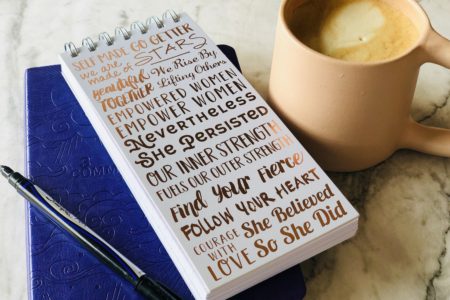 SELF MADE GO GETTER
we are made of STARS
BEAUTIFUL We Rise By
TOGETHER Lifting Others
EMPOWERED WOMEN
EMPOWER WOMEN
Nevertheless
She Persisted
OUR INNER STRENGTH
FUELS OUR OUTER STRENGTH
Find Your Fierce
FOLLOW YOUR HEART
COURAGE She Believed
WITH LOVE So She Did